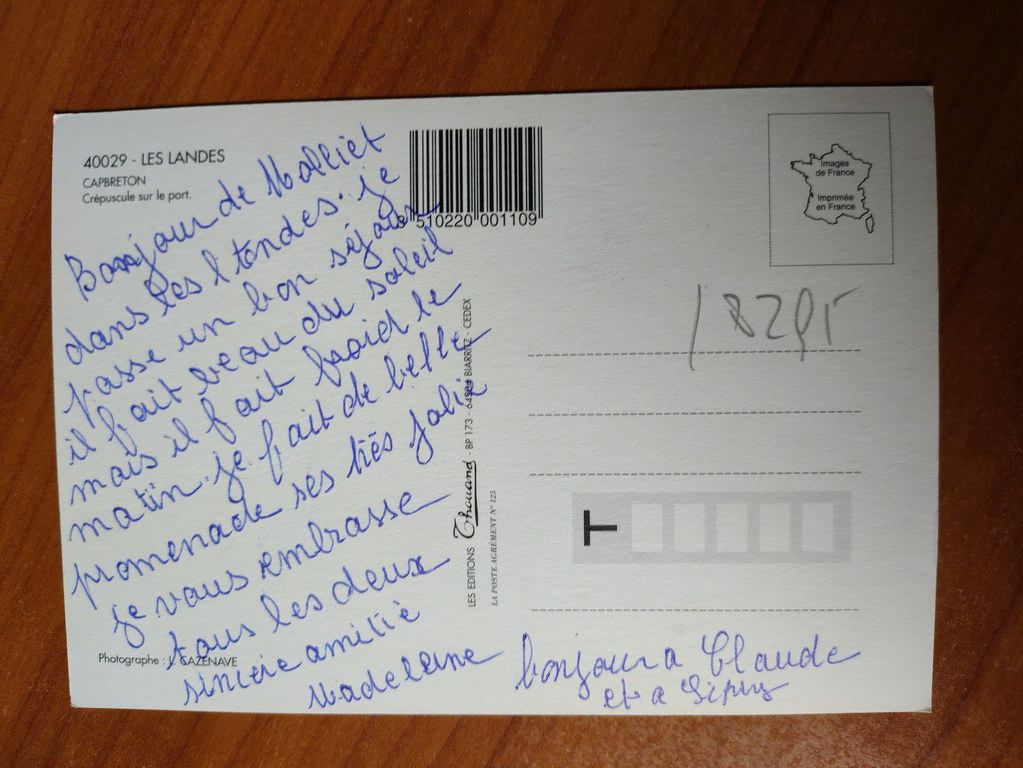 40029 - LES LANDES
CAPBRETON
Crépuscule sur le port.
Bonjour de Molliet
dans les landes. je
passe un bon séjour
il fait beau du soleil
mais il fait froid le
matin. je fait de belle
promenade ses très jolie
je vous embrasse
tous les deux
sincère amitié
Madeleine
Photographe : J. CAZENAVE
510220 001109
LES EDITIONS Thouand - BP 173 - BIARRITZ - CEDEX
LA POSTE AGRÉMENT N° 125
Images
de France
Imprimée
en France
18295
T
bonjour a Claude
et a